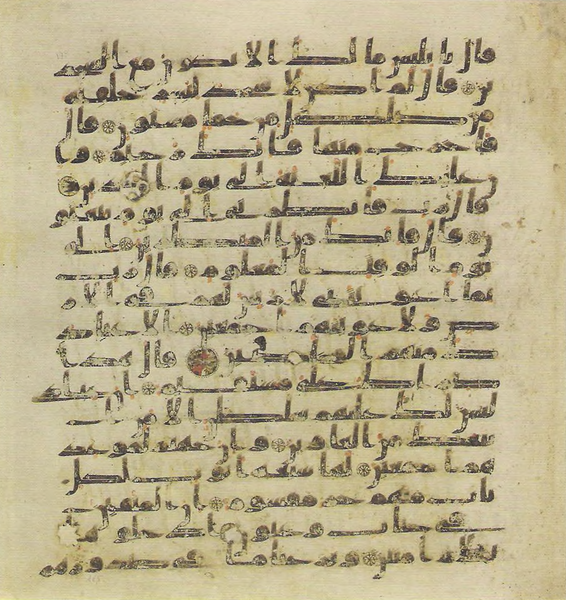 قال يابليس ما لك الا تكون مع السجد
ين قال لم اكن لاسجد لبشر خلقته
من صلصل من حما مسنون قال
فاخرج منها فانك رجيم وا
ن عليك اللعنة الى يوم الدين
قال رب فانظرني الى يوم يبعثو
ن قال فانك من المنظرين الى
يوم الوقت المعلوم قال رب
بما اغويتني لازينن لهم في الار
ض ولاغوينهم اجمعين الا عباد
ك منهم المخلصين قال هذا
صرط علي مستقيم ان عبادي
ليس لك عليهم سلطن الا من ا
تبعك من الغاوين وان جهنم لموعد
هم اجمعين لها سبعة ابوب لكل
باب منهم جز مقسوم ان المتقين
في جنت وعيون ادخلوها
بسلم امنين ونزعنا ما في صدورهم